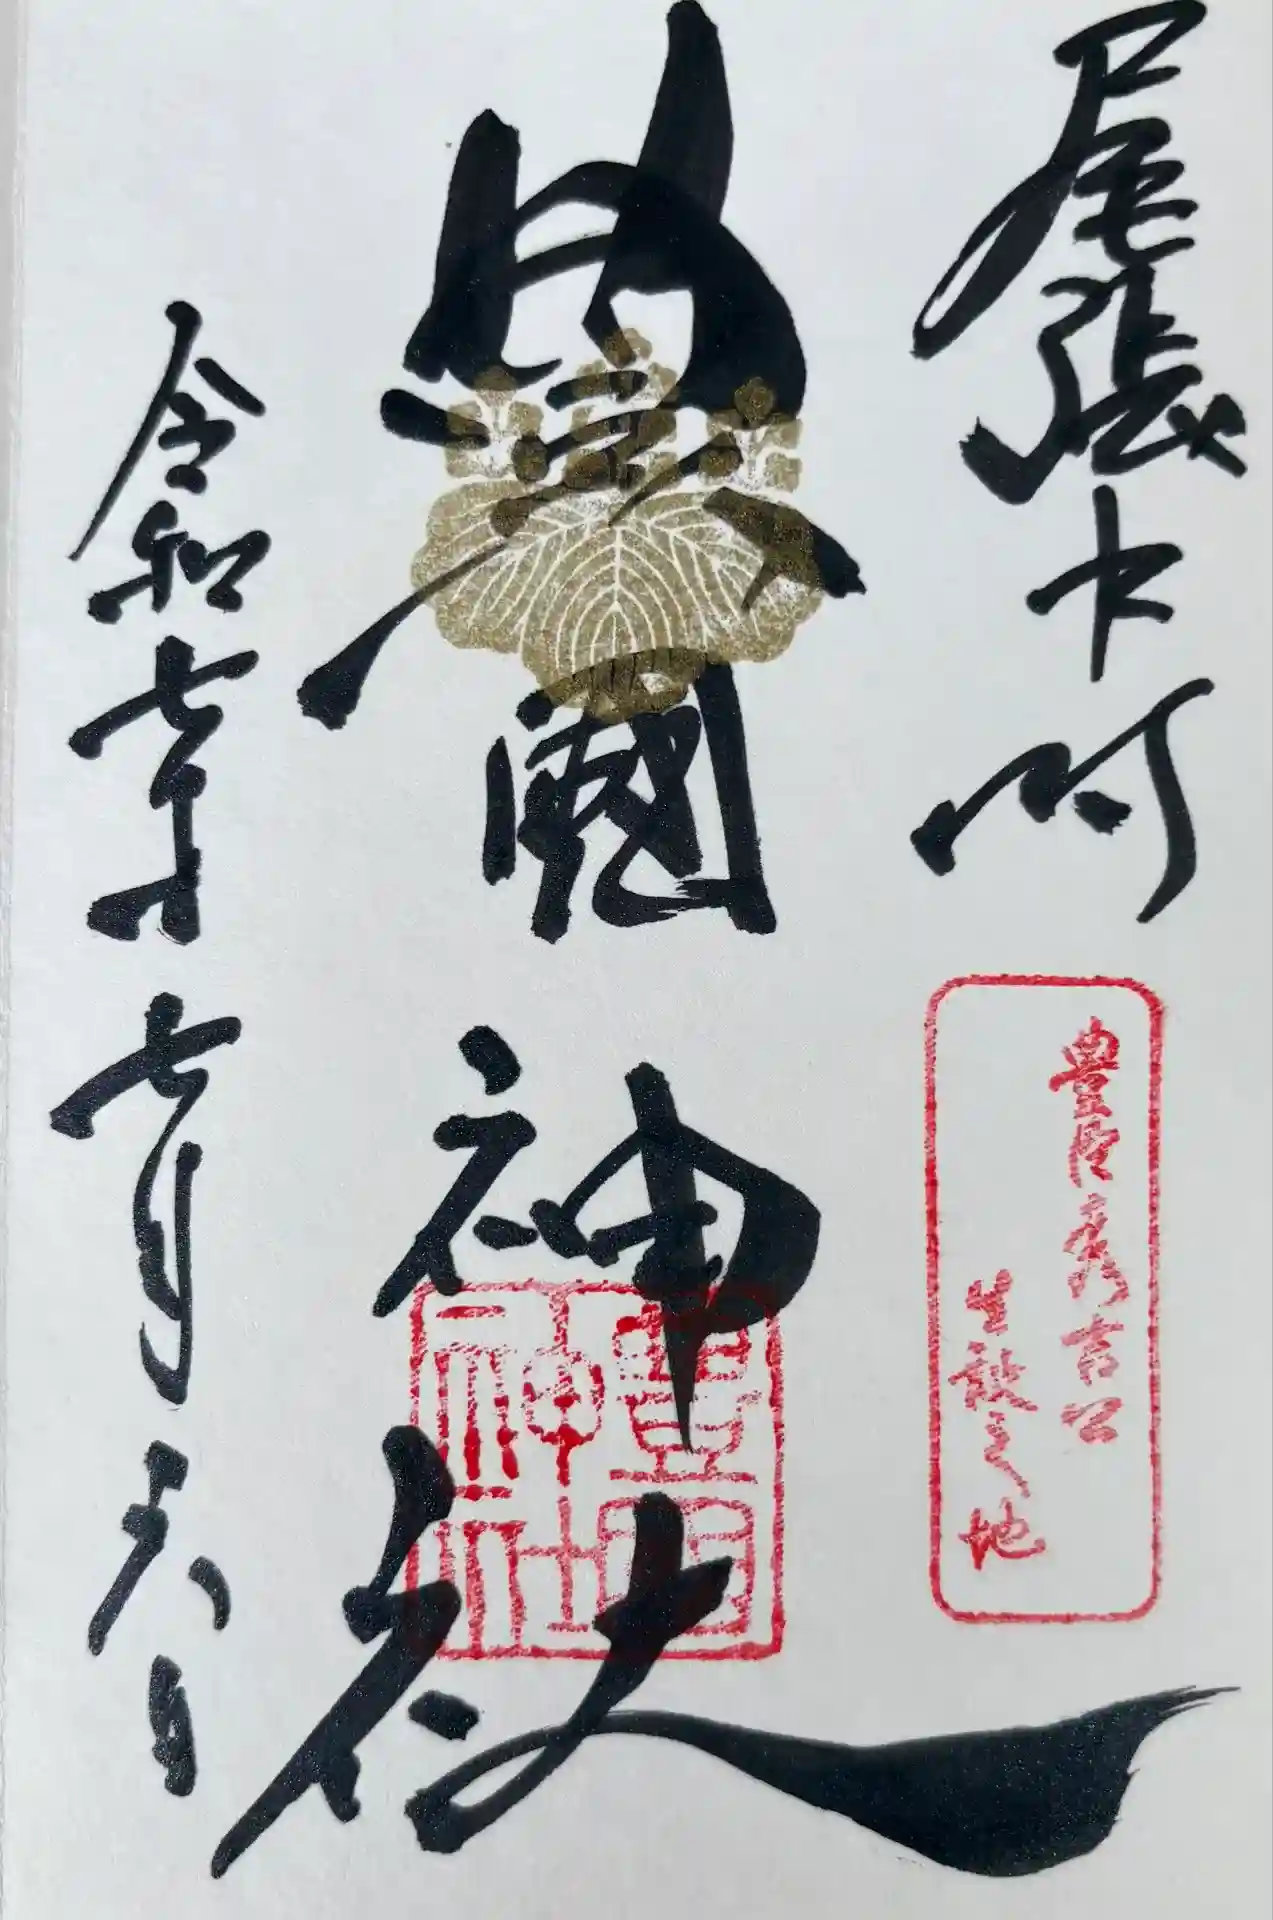 尾張中村
豊臣秀吉公
生誕之地
豊國神社
豊國
神社
令和七年七月六日